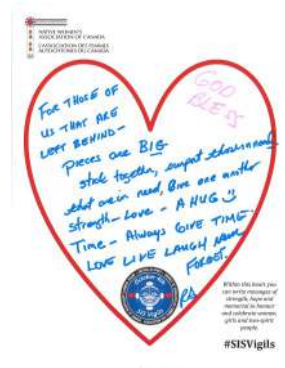 NATIVE WOMEN'S
ASSOCIATION OF CANADA
L'ASSOCIATION DES FEMMES
AUTOCHTONES DU CANADA
GOD
BLESS
FOR THOSE OF
US THAT ARE
LEFT BEHIND-
Pieces are BIG
stick together, support others in need
that are in need, Give one another
strength - Love - A HUG
Time - Always GIVE TIME.
LOVE LIVE LAUGH Never
FORGET.
October 4th
SIS Vigils
Within this heart you
can write messages of
strength, hope and
memorial to honour
and celebrate women,
girls and two-spirit
people.
#SISVigils